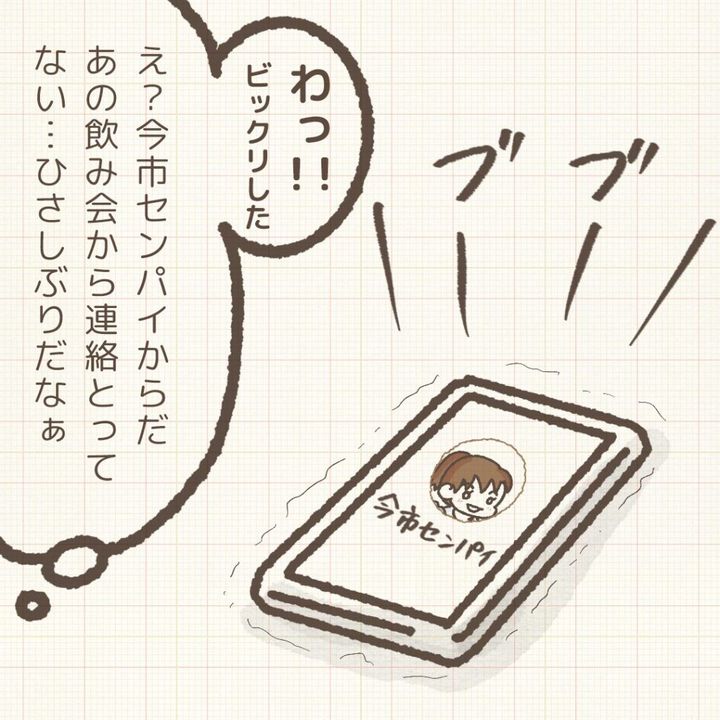 わっ!!
ビックリした
え?今市センパイからだ
あの飲み会から連絡とって
ない…ひさしぶりだなぁ
ブブ
今市センパイ